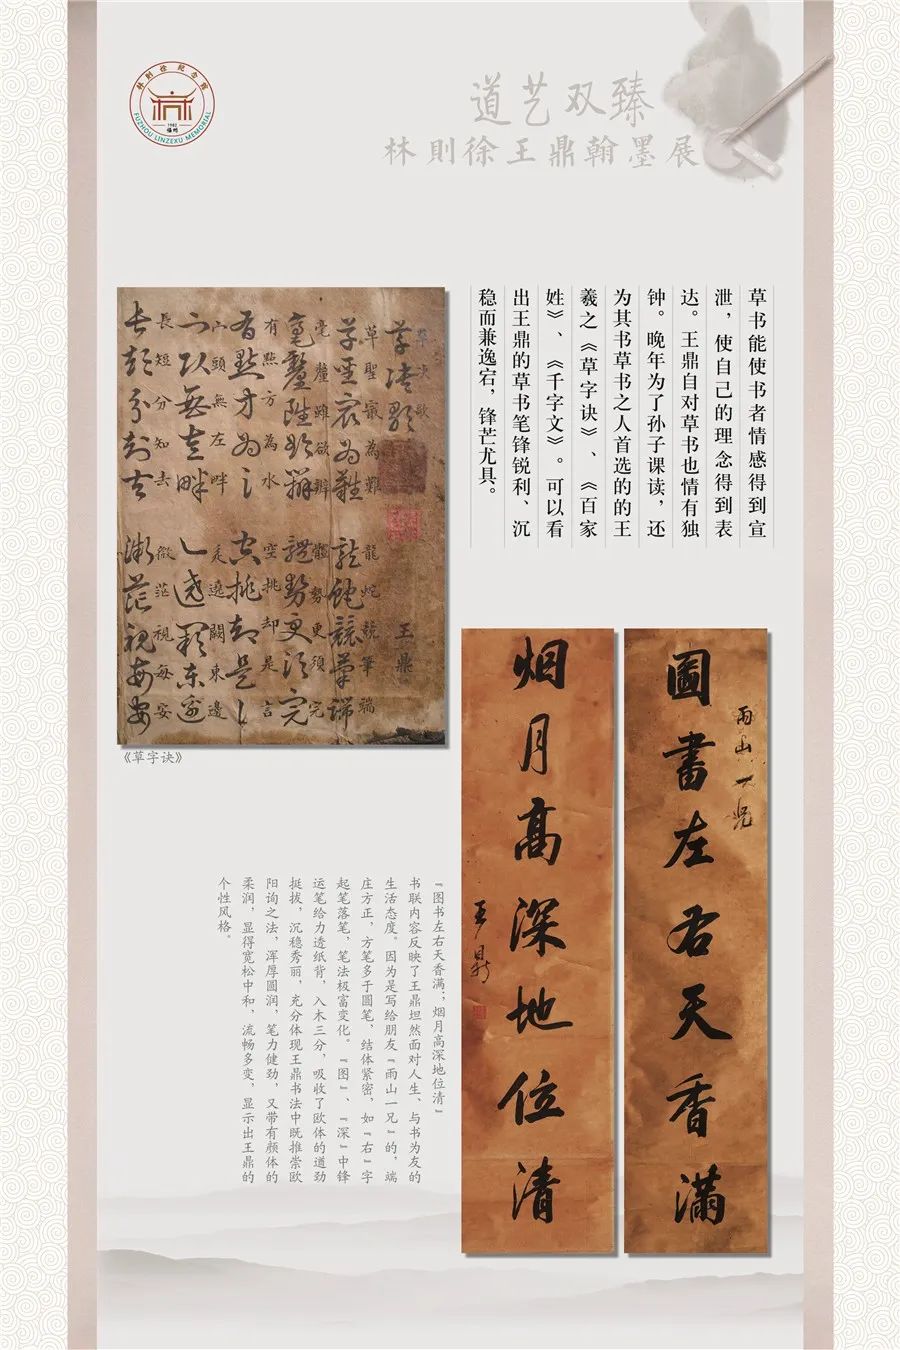 林则徐纪念馆
1982
福州
FUZHOU LINZEXU MEMORIAL
道艺双臻
林則徐王鼎翰墨展
草书能使书者情感得到宣
泄，使自己的理念得到表
达。王鼎自对草书也情有独
钟。晚年为了孙子课读，还
为其书草书之人首选的的王
羲之《草字诀》、《百家
姓》、《千字文》。可以看
出王鼎的草书笔锋锐利、沉
稳而兼逸宕，锋芒尤具。
草决歌
王鼎
草聖寂為難 龍蛇競筆端
毫釐雖欲辨 體勢更須完
有點方為水 空挑却是言
山頭無左畔 走遶闕東邊
長短分知去 微茫視每安
《草字诀》
雨山一兄
圖書左右天香滿
烟月高深地位清
王鼎
『图书左右天香满；烟月高深地位清』
书联内容反映了王鼎坦然面对人生、与书为友的
生活态度。因为是写给朋友『雨山一兄』的，端
庄方正，方笔多于圆笔，结体紧密，如『右』字
起笔落笔，笔法极富变化。『图』、『深』中锋
运笔给力透纸背，入木三分，吸收了欧体的遒劲
挺拔，沉稳秀丽，充分体现王鼎书法中既推崇欧
阳询之法，浑厚圆润，笔力健劲，又带有颜体的
柔润，显得宽松中和，流畅多变，显示出王鼎的
个性风格。